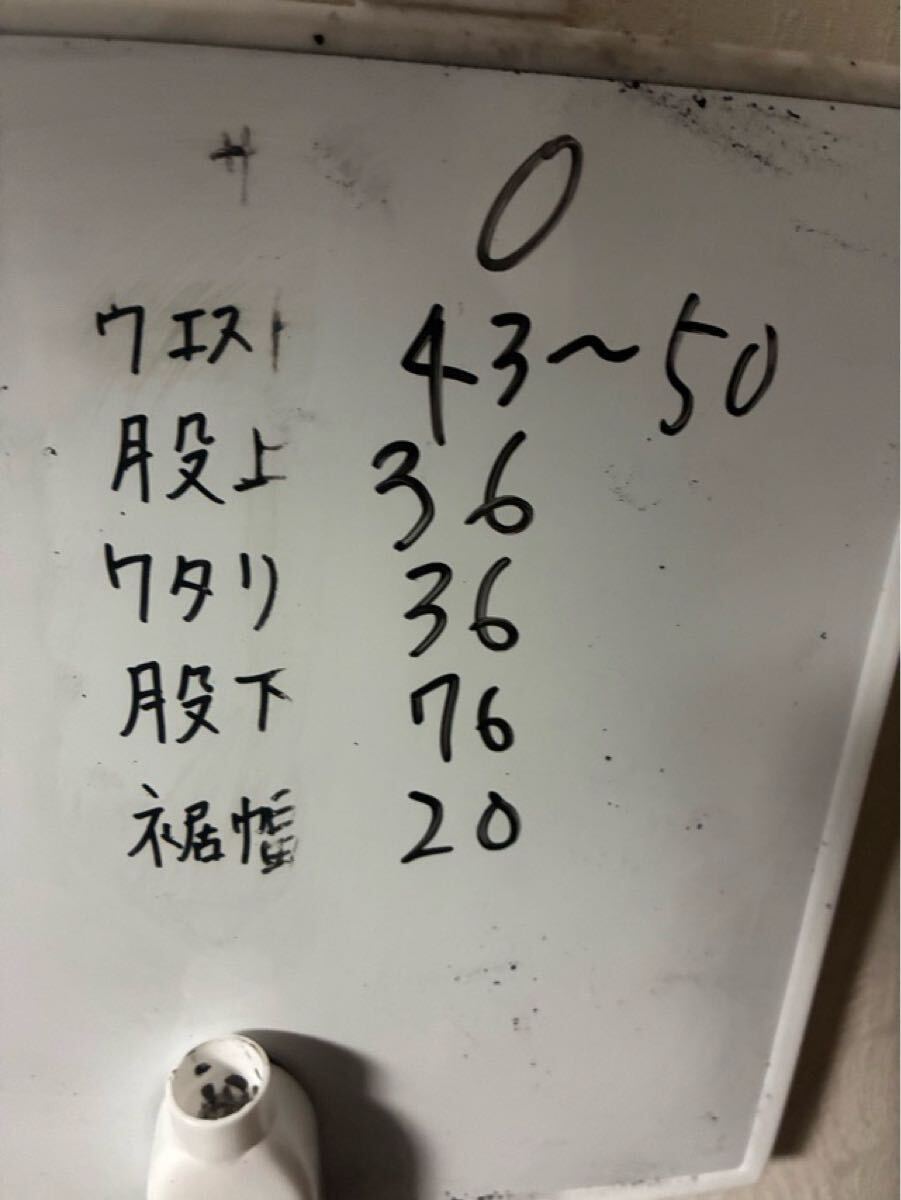 サ 0
ウエスト 43～50
股上 36
ワタリ 36
股下 76
裾幅 20